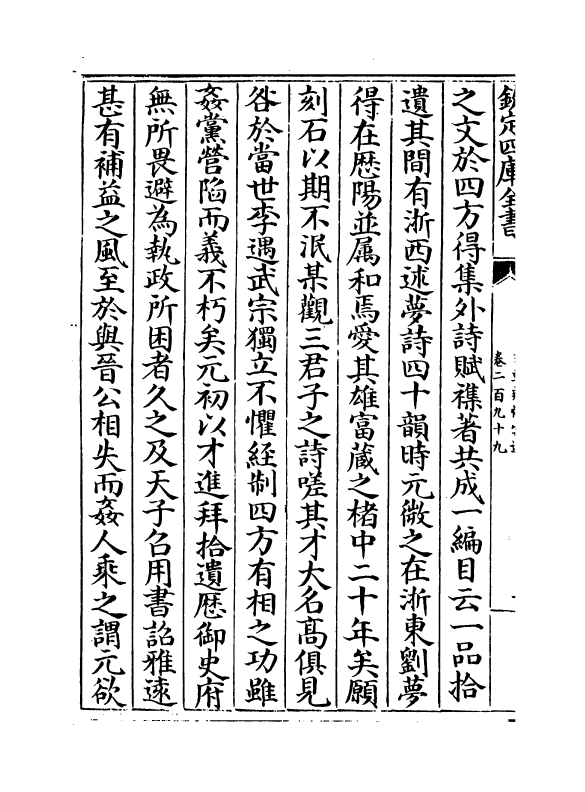 欽定四庫全書
卷二百九十九
之文於四方得集外詩賦襍著共成一編目云一品拾
遺其間有浙西述夢詩四十韻時元微之在浙東劉夢
得在歴陽並属和焉愛其雄富蔵之楮中二十年矣願
刻石以期不泯某觀三君子之詩嗟其才大名髙俱見
咎於當世李遇武宗獨立不懼經制四方有相之功雖
姦黨營陷而義不朽矣元初以才進拜拾遺歴御史府
無所畏避為執政所困者久之及天子召用書詔雅逺
甚有補益之風至於與晉公相失而姦人乘之謂元欲